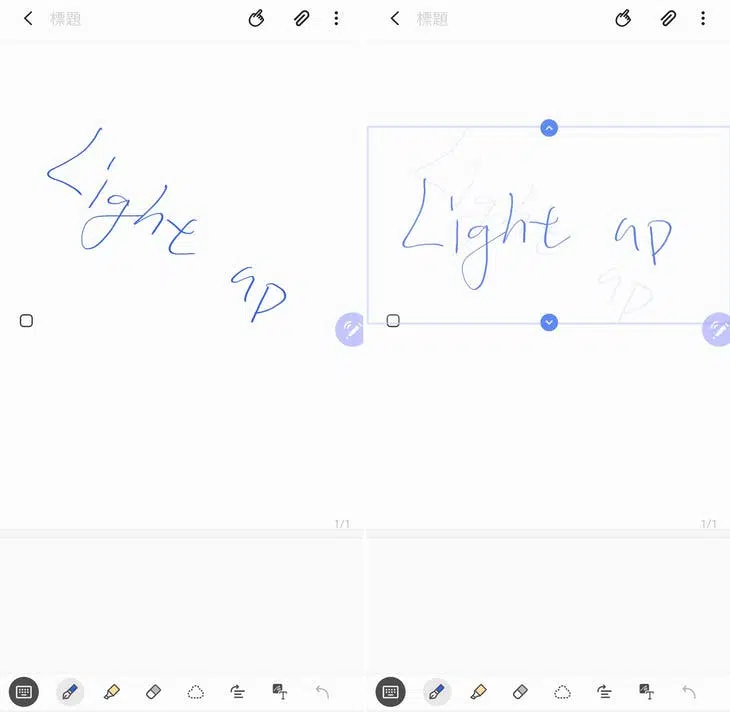 標題
Light
ap
1/1
標題
Light ap
1/1